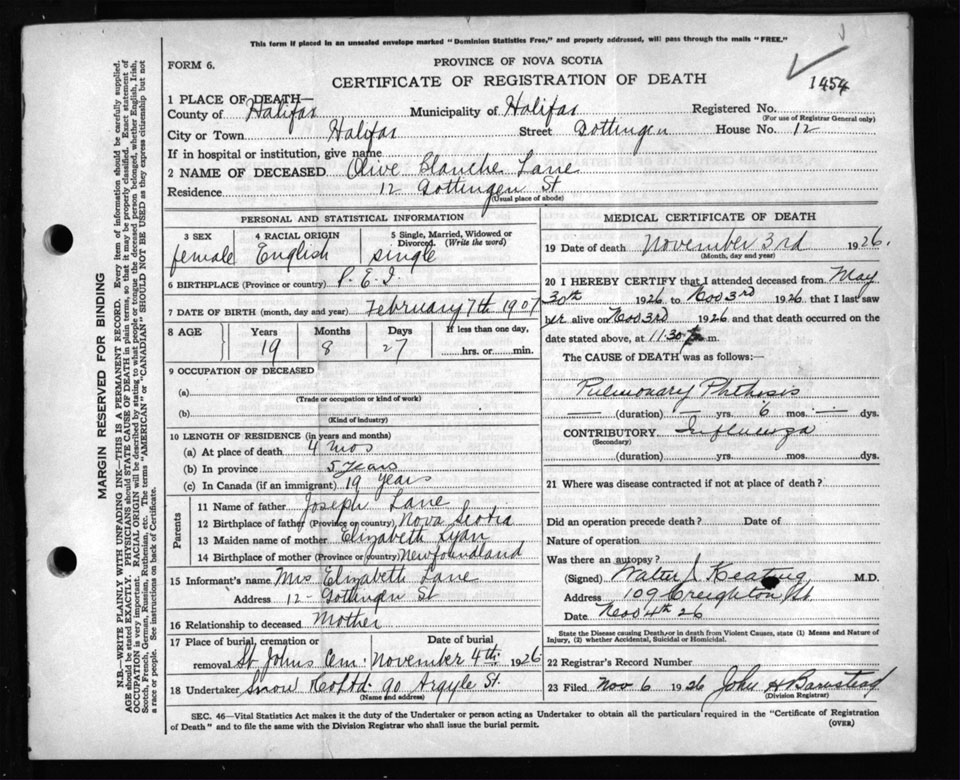 This form if placed in an unsealed envelope marked "Dominion Statistics Free," and properly addressed, will pass through the mails "FREE."
FORM 6.
PROVINCE OF NOVA SCOTIA
CERTIFICATE OF REGISTRATION OF DEATH
1454
1 PLACE OF DEATH—
County of Halifax Municipality of Halifax Registered No.
(For use of Registrar General only)
City or Town Halifax Street Gottingen House No. 12
If in hospital or institution, give name
2 NAME OF DECEASED Olive Blanche Lane
Residence 12 Gottingen St
(Usual place of abode)
PERSONAL AND STATISTICAL INFORMATION
3 SEX 4 RACIAL ORIGIN 5 Single, Married, Widowed or Divorced. (Write the word)
female English single
6 BIRTHPLACE (Province or country) P.E.I.
7 DATE OF BIRTH (month, day and year) February 7th 1907
8 AGE Years Months Days If less than one day,
19 8 27 hrs. or min.
9 OCCUPATION OF DECEASED
(a)
(Trade or occupation or kind of work)
(b)
(Kind of industry)
10 LENGTH OF RESIDENCE (in years and months)
(a) At place of death 4 mos
(b) In province 5 years
(c) In Canada (if an immigrant) 19 years
Parents
11 Name of father Joseph Lane
12 Birthplace of father (Province or country) Nova Scotia
13 Maiden name of mother Elizabeth Ryan
14 Birthplace of mother (Province or country) Newfoundland
15 Informant's name Mrs Elizabeth Lane
Address 12 - Gottingen St
16 Relationship to deceased Mother
17 Place of burial, cremation or Date of burial
removal St Johns Cem. November 4th. 1926
18 Undertaker Snow Co Ltd. 90 Argyle St.
(Name and address)
MEDICAL CERTIFICATE OF DEATH
19 Date of death November 3rd 1926.
(Month, day and year)
20 I HEREBY CERTIFY that I attended deceased from May
30th 1926 to Nov 3rd 1926, that I last saw
her alive on Nov 3rd 1926 and that death occurred on
date stated above, at 11.30 m.
The CAUSE of DEATH was as follows:—
Pulmonary Phthisis
— (duration) — yrs. 6 mos. — dys.
CONTRIBUTORY Influenza
(Secondary)
(duration) yrs. mos. dys.
21 Where was disease contracted if not at place of death?
Did an operation precede death? Date of
Nature of operation
Was there an autopsy?
(Signed) Walter J. Keating M.D.
Address 109 Creighton St
Date Nov 4th 26
State the Disease causing Death, or in death from Violent Causes, state (1) Means and Nature of
Injury, (2) whether Accidental, Suicidal or Homicidal.
22 Registrar's Record Number
23 Filed Nov 6 1926 John H Barnstead
(Division Registrar)
SEC. 46—Vital Statistics Act makes it the duty of the Undertaker or person acting as Undertaker to obtain all the particulars required in the "Certificate of Registration
of Death" and to file the same with the Division Registrar who shall issue the burial permit. (OVER)
MARGIN RESERVED FOR BINDING
N.B.—WRITE PLAINLY WITH UNFADING INK—THIS IS A PERMANENT RECORD. Every item of information should be carefully supplied.
AGE should be stated EXACTLY. PHYSICIANS should STATE CAUSE OF DEATH in plain terms, so that it may be properly classified. Exact statement of
OCCUPATION is very important. RACIAL ORIGIN will be described by stating to what people or tongue the deceased person belonged, whether English, Irish,
Scotch, French, German, Russian, Ruthenian, etc. The terms "AMERICAN" or "CANADIAN" SHOULD NOT BE USED as they express citizenship but not
a race or people. See instructions on back of Certificate.